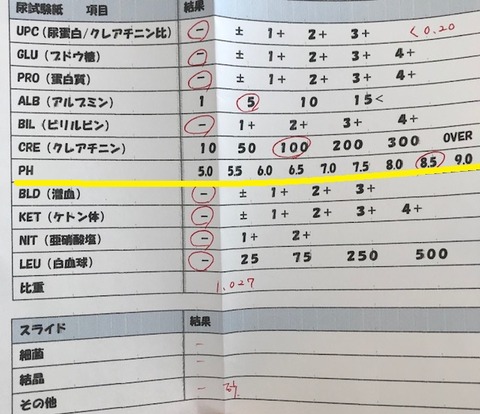 尿試験紙 項目 結果
UPC(尿蛋白/クレアチニン比) - ± 1+ 2+ 3+ <0.20
GLU(ブドウ糖) - ± 1+ 2+ 3+ 4+
PRO(蛋白質) - ± 1+ 2+ 3+ 4+
ALB(アルブミン) 1 5 10 15<
BIL(ビリルビン) - 1+ 2+ 3+ 4+
CRE(クレアチニン) 10 50 100 200 300 OVER
PH 5.0 5.5 6.0 6.5 7.0 7.5 8.0 8.5 9.0
BLD(潜血) - ± 1+ 2+ 3+
KET(ケトン体) - ± 1+ 2+ 3+ 4+
NIT(亜硝酸塩) - 1+ 2+
LEU(白血球) - 25 75 250 500
比重 1.027
スライド 結果
細菌 -
結晶 -
その他 -